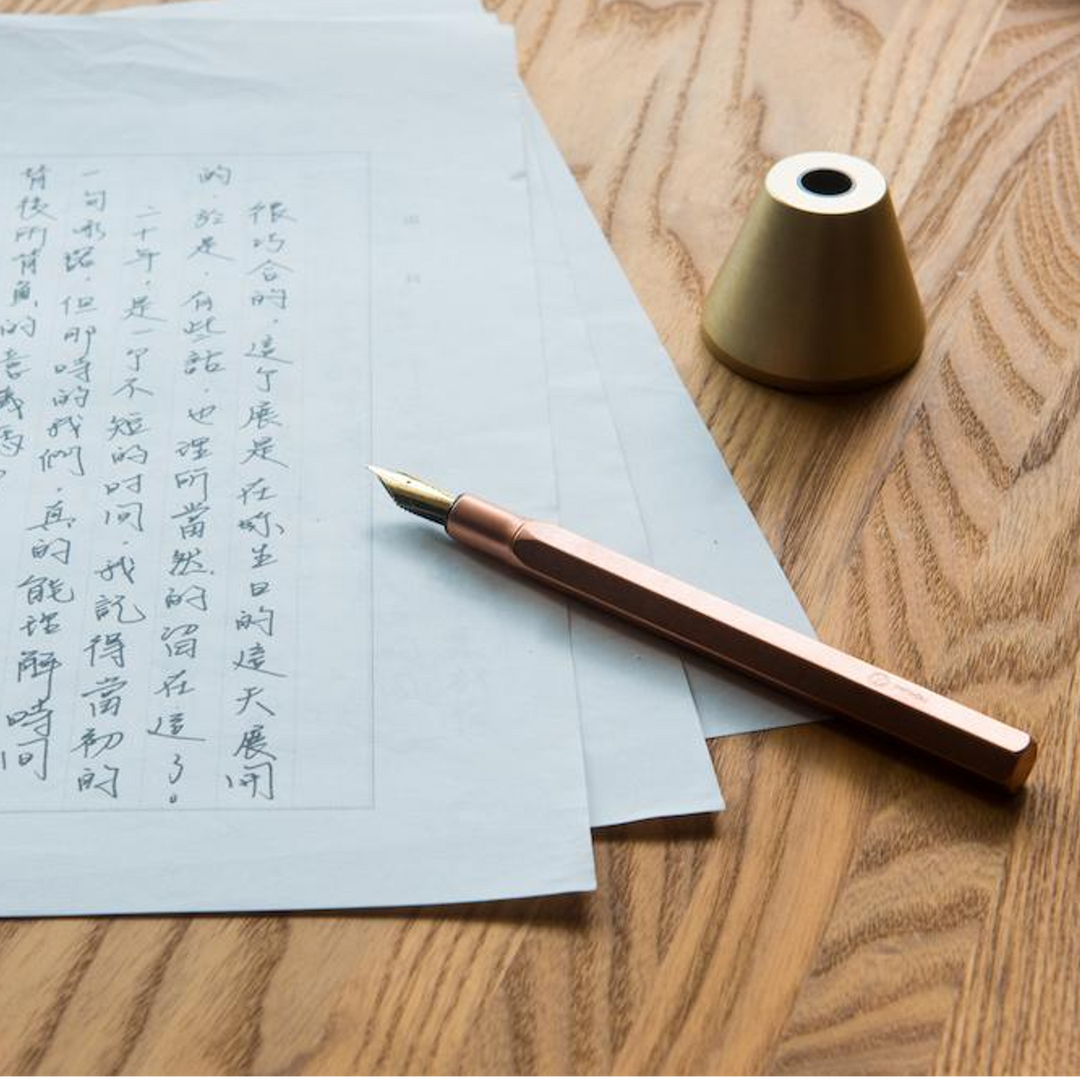 很巧合的，這个展是在妳生日的這天展開
的，於是，有些話，也理所當然的留在這了。
二十年，是一个不短的时间，我記得當初的
一句，但那時的我們，真的能理解時间
背後所背負的意義